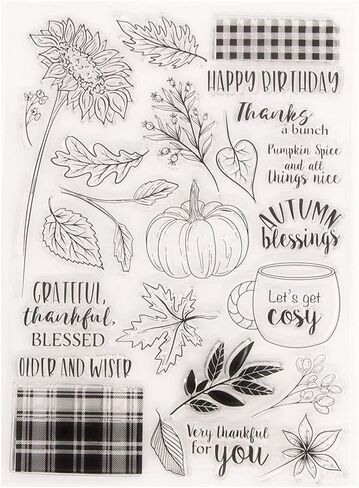 HAPPY BIRTHDAY
Thanks
a bunch
Pumpkin Spice
and all
things nice
AUTUMN
blessings
GRATEFUL,
thankful,
BLESSED
Let's get
cosy
OLDER AND WISER
Very thankful
for you